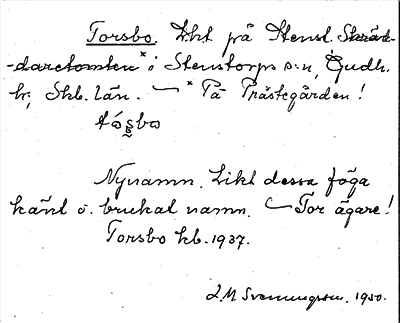 Torsbo. Lht på Stensl. Skräd-
-daretomten* i Stenstorps s:n, Gudh.
h., Skb. län. — * På Prästegården!
tósbo
Nynamn. Likt dessa föga
känt o. brukat namn. — Tor ägare!
Torsbo kb. 1937.
L.M Svenungsson. 1950.